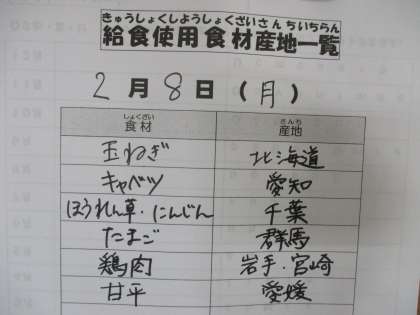 きゅうしょくしようしょくざいさんちいちらん
給食使用食材産地一覧
2月8日(月)
しょくざい さんち
食材 産地
玉ねぎ 北海道
キャベツ 愛知
ほうれん草・にんじん 千葉
たまご 群馬
鶏肉 岩手・宮崎
甘平 愛媛